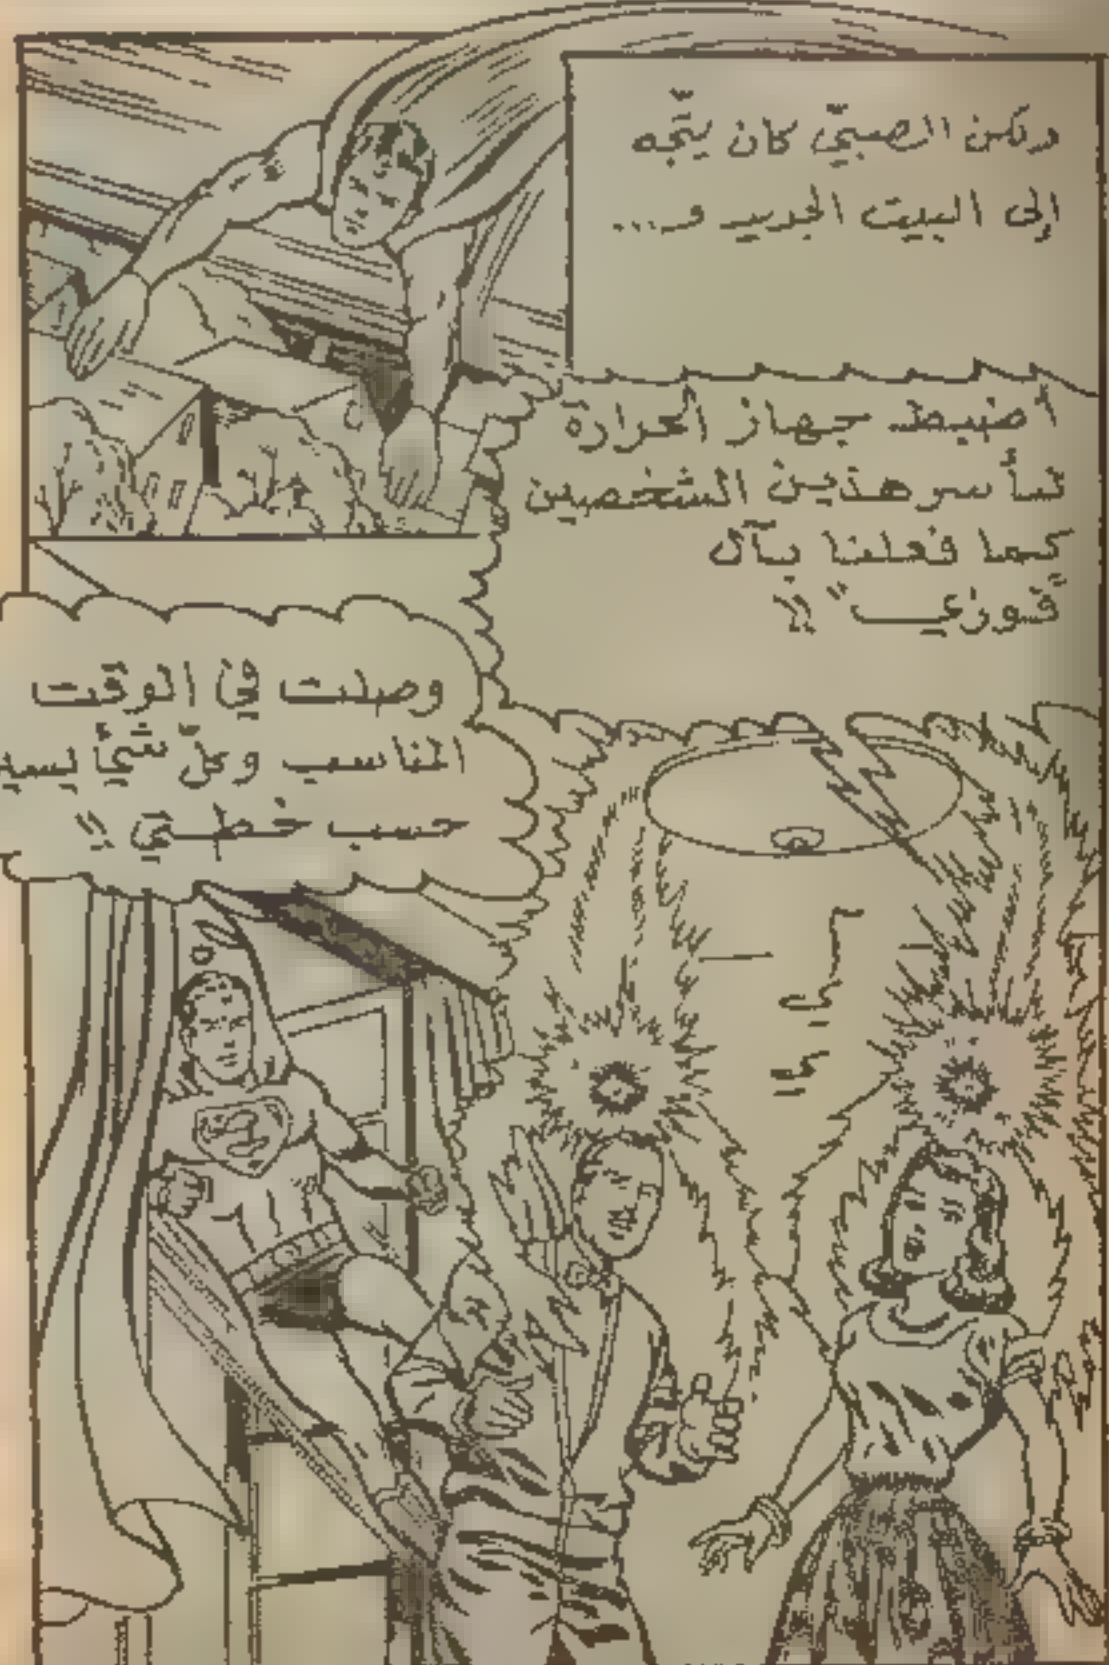 ولكن الصبيّ كان يتّجه
إلى البيت الجديد و...
أضبط جهاز الحرارة
لنأسر هذين الشخصين
كما فعلنا بآل
"فوزي" !!
وصلت في الوقت
المناسب وكلّ شيء يسير
حسب خطتي !!